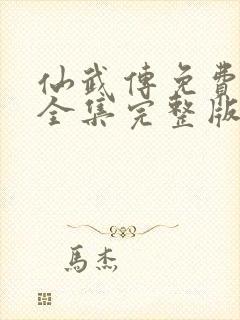 仙武傳免費
全集完整版
馬杰